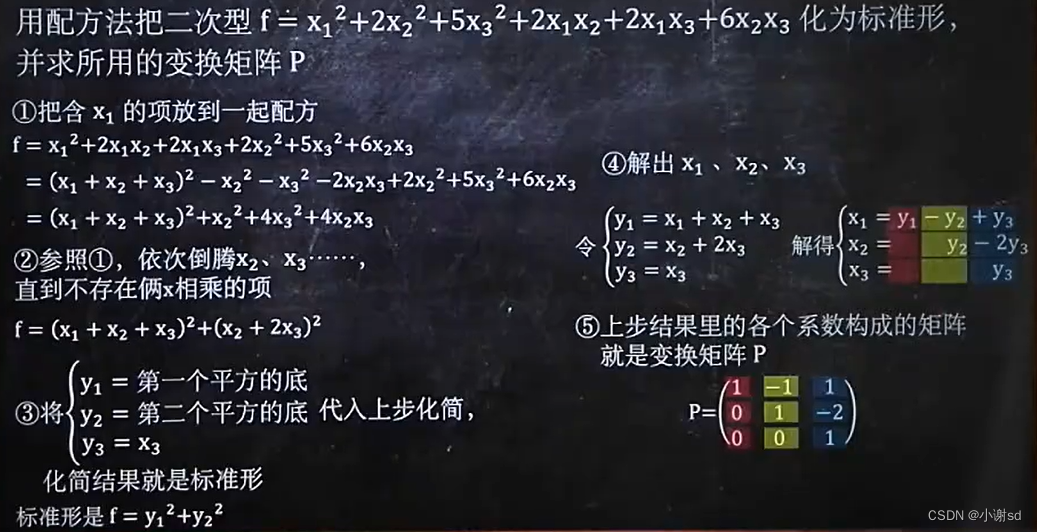 用配方法把二次型 f = x₁²+2x₂²+5x₃²+2x₁x₂+2x₁x₃+6x₂x₃ 化为标准形，
并求所用的变换矩阵 P
①把含 x₁ 的项放到一起配方
f = x₁²+2x₁x₂+2x₁x₃+2x₂²+5x₃²+6x₂x₃
= (x₁ + x₂ + x₃)² − x₂² − x₃² −2x₂x₃+2x₂²+5x₃²+6x₂x₃
= (x₁ + x₂ + x₃)²+x₂²+4x₃²+4x₂x₃
②参照①，依次倒腾x₂、x₃……，
直到不存在俩x相乘的项
f = (x₁ + x₂ + x₃)²+(x₂ + 2x₃)²
y₁ = 第一个平方的底
③将 y₂ = 第二个平方的底 代入上步化简，
y₃ = x₃
化简结果就是标准形
标准形是 f = y₁²+y₂²
④解出 x₁ 、x₂、x₃
y₁ = x₁ + x₂ + x₃ x₁ = y₁ − y₂ + y₃
令 y₂ = x₂ + 2x₃ 解得 x₂ = y₂ − 2y₃
y₃ = x₃ x₃ = y₃
⑤上步结果里的各个系数构成的矩阵
就是变换矩阵 P
1 −1 1
P= 0 1 −2
0 0 1
CSDN @小谢sd